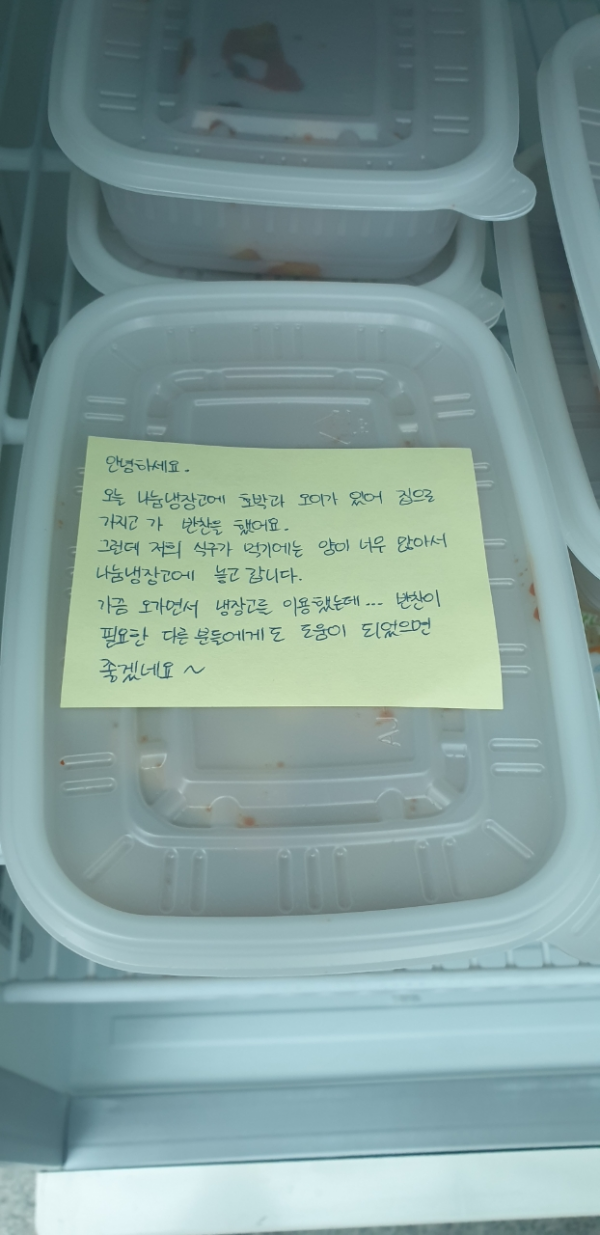 안녕하세요.
오늘 나눔냉장고에 호박과 오이가 있어 집으로
가지고 가 반찬을 했어요.
그런데 저희 식구가 먹기에는 양이 너무 많아서
나눔냉장고에 놓고 갑니다.
가끔 오가면서 냉장고를 이용했는데... 반찬이
필요한 다른 분들에게도 도움이 되었으면
좋겠네요~